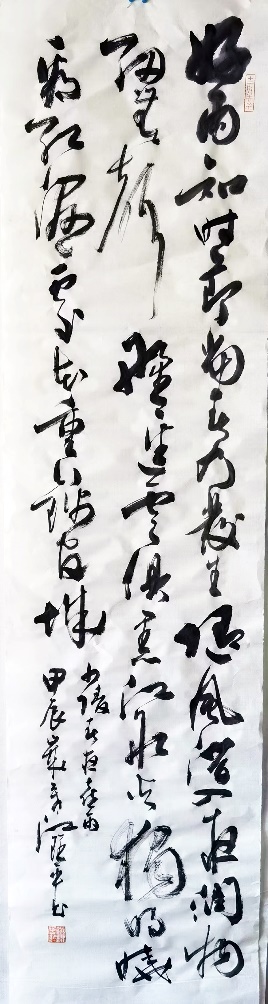 好雨知时节当春乃发生随风潜入夜润物
细无声野径云俱黑江船火独明晓
看红湿处花重锦官城
少陵春夜喜雨
甲辰岁